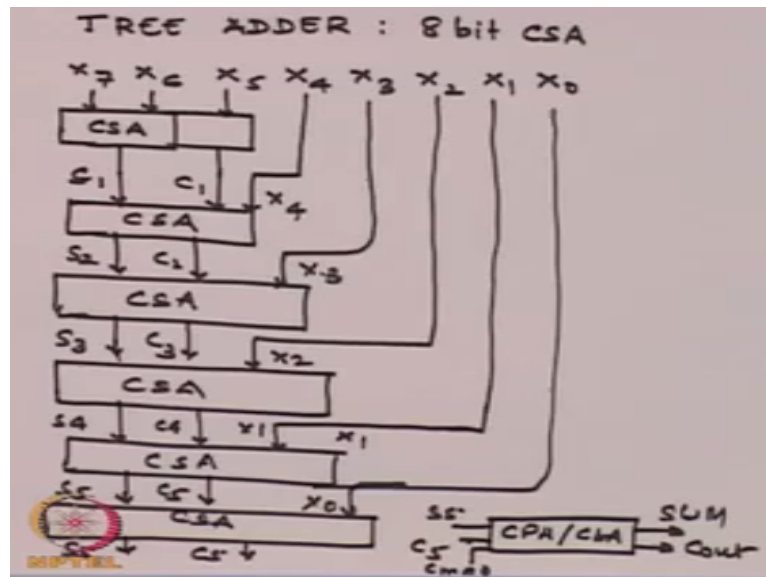 TREE ADDER : 8 bit CSA
X7 X6 X5 X4 X3 X2 X1 X0
CSA
S1 C1 X4
CSA
S2 C2 X3
CSA
S3 C3 X2
CSA
S4 C4 X1 X1
CSA
S5 C5 X0
CSA
C5
S5 CPA/CLA SUM
C5 Cout
NPTEL